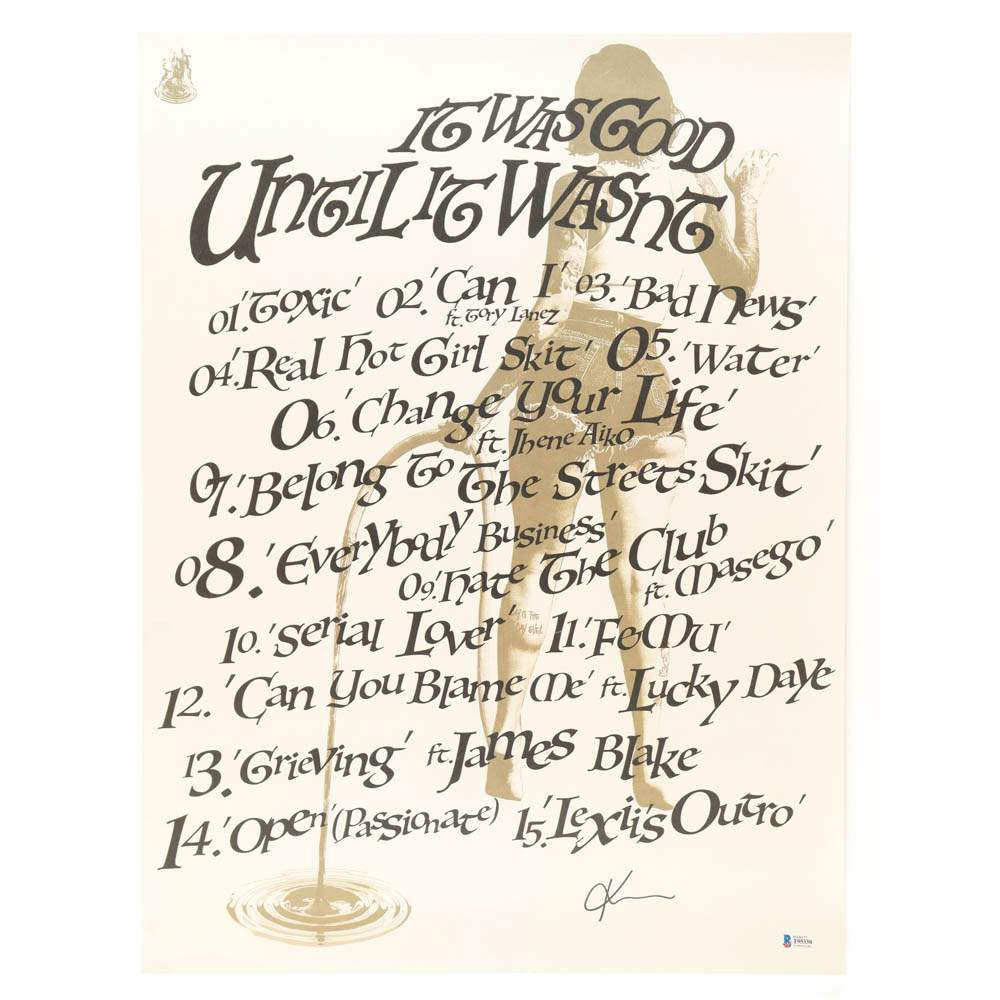 It Was Good
Until It Wasnt
01.'Toxic' 02.'Can I' 03.'Bad News'
ft. Tory Lanez
04.'Real Hot Girl Skit' 05.'Water'
06.'Change Your Life'
ft. Jhene Aiko
07.'Belong To The Streets Skit'
08.'Everybody Business'
09.'Hate The Club
ft. Masego'
10.'Serial Lover' 11.'FeMU'
12.'Can You Blame Me' ft. Lucky Daye
13.'Grieving' ft. James Blake
14.'Open' (Passionate) 15.'Lexii's Outro'
T95330